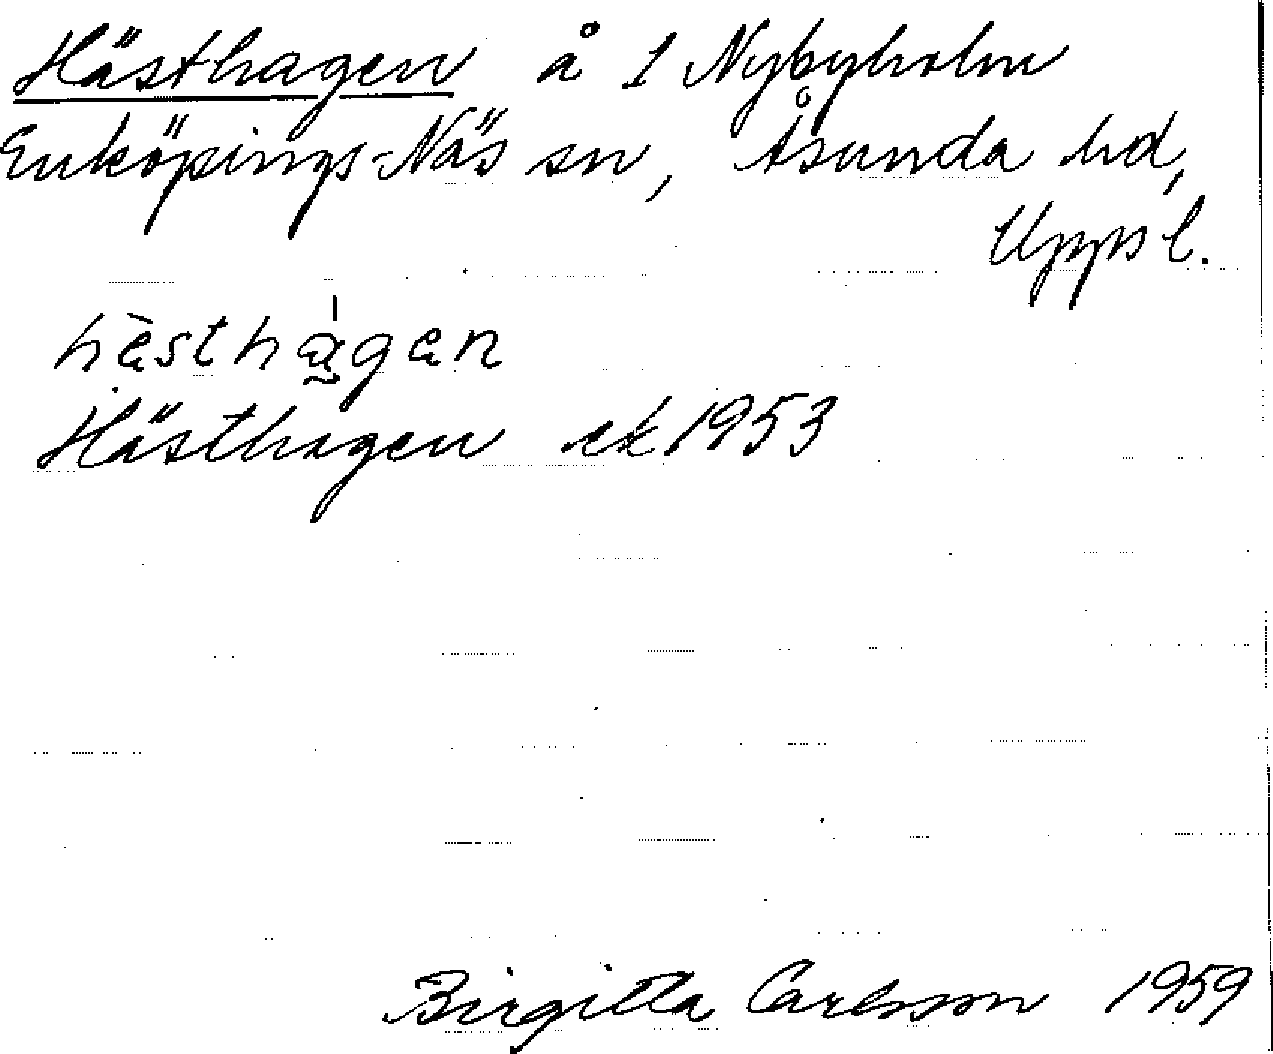 Hästhagen å 1 Nybyholm
Enköpings-Näs sn, Åsunda hd,
Uppl.
hèsthágen
Hästhagen ek 1953
Birgitta Carlsson 1959